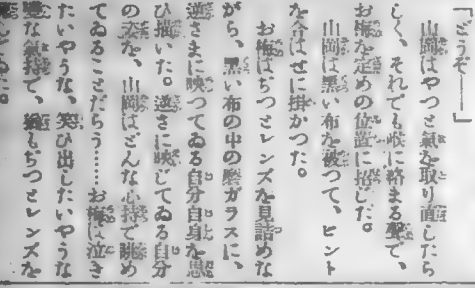 「どうぞ――」
山岡はやつと氣を取り直したら
しく、それでも喉に絡まる聲で、
お梅を定めの位置に招じた。
山岡は黒い布を被つて、ピント
を合はせに掛かつた。
お梅はぢつとレンズを見詰めな
がら、黒い布の中の磨ガラスに、
逆さまに映つてゐる自分自身を思
ひ描いた。逆さに映じてゐる自分
の姿を、山岡はどんな心持で眺め
てゐることだらう……お梅は泣き
たいやうな、笑ひ出したいやうな
な氣持で、もぢつとレンズを